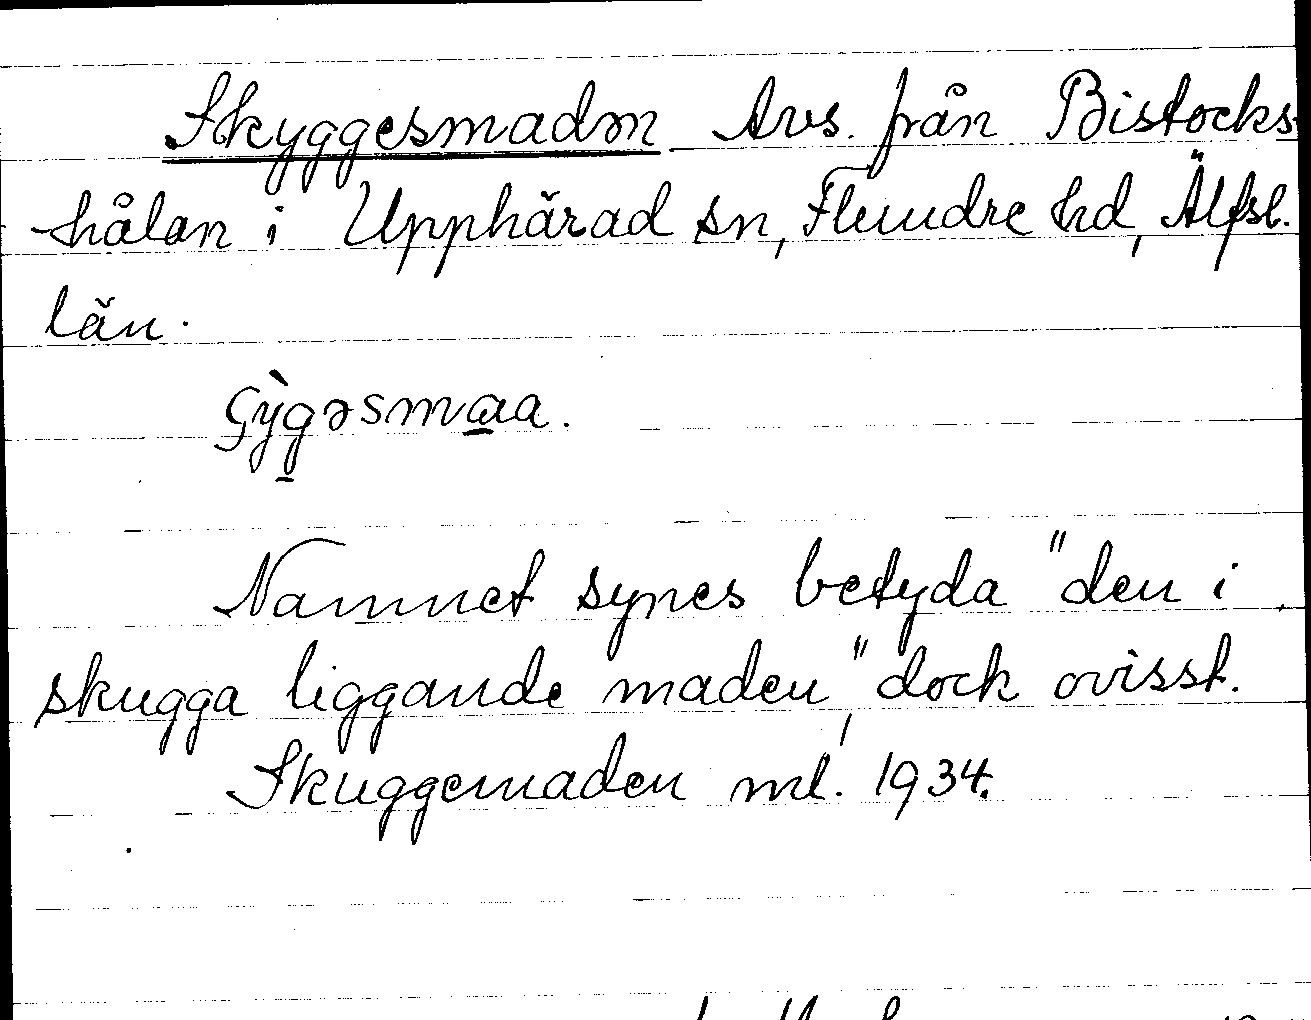 Skyggesmadm Avs. från Bistocks-
hålan i Upphärad sn, Flundre hd, Älfsb.
län.
Ꞔy̌gəsmaa.
Namnet synes betyda "den i
skugga liggande maden", dock ovisst.
Skuggemaden ml. 1934.